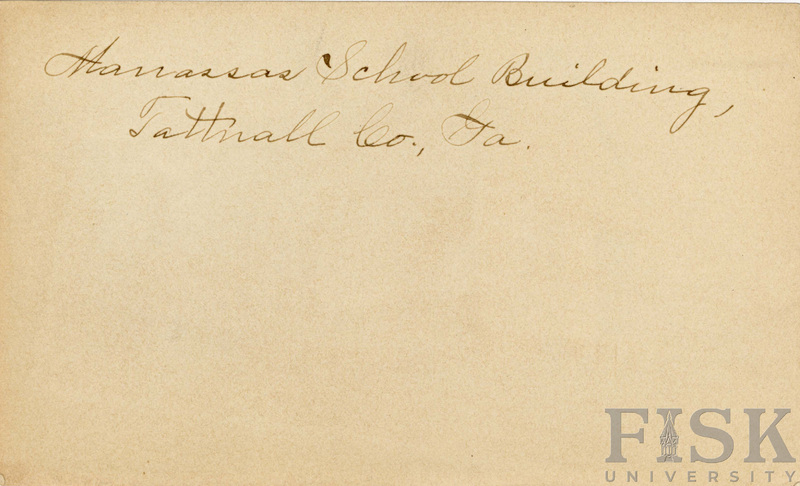 Manassas School Building,
Tattnall Co., Ga.
FISK
UNIVERSITY